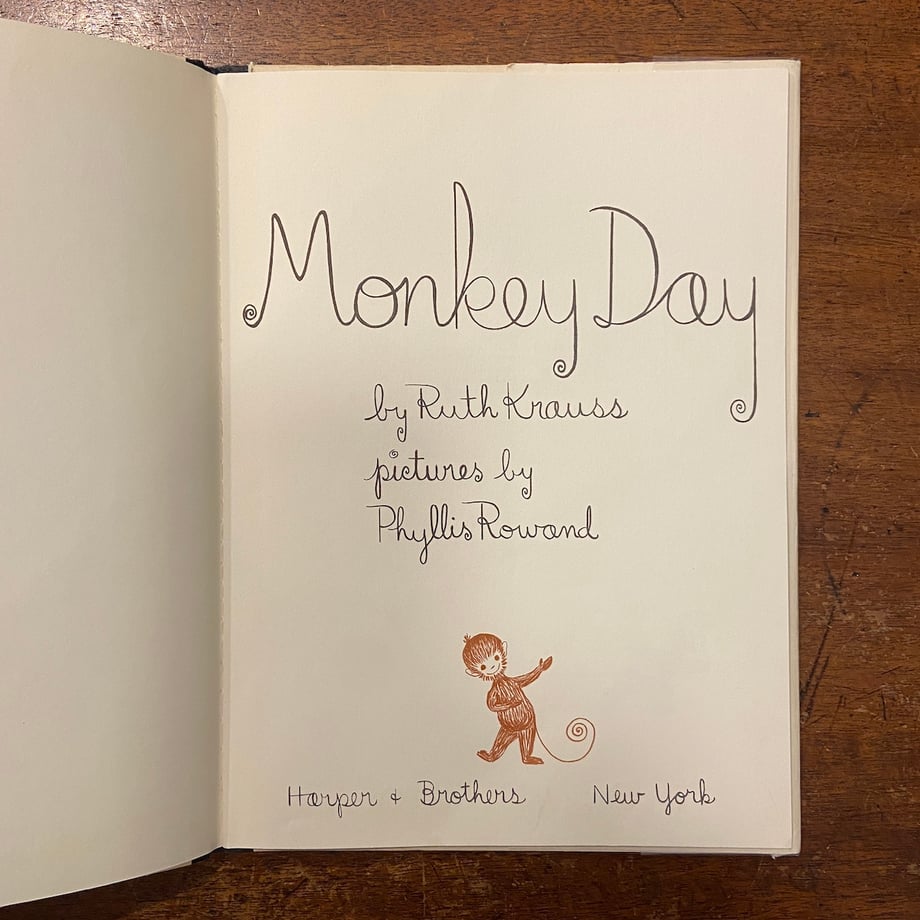 Monkey Day
by Ruth Krauss
pictures by
Phyllis Rowand
Harper & Brothers New York